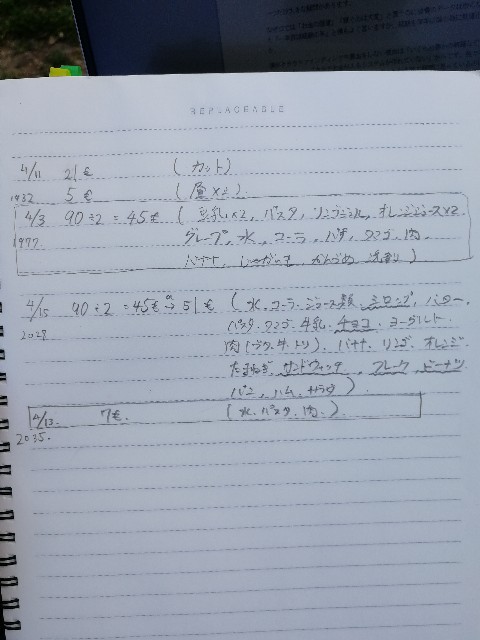 REPLACEABLE
4/11 21€ (カット)
1932 5€ (屋×2)
4/3 90÷2=45€ (豆乳×2, パスタ, リンゴジュース, オレンジジュース×2
1977 グレープ, 水, コーラ, ハサ, タマゴ, 肉,
バナナ, じゃがいも かんづめ
4/15 90÷2=45€ → 51€ (水, コーラ・ジュース類, シロップ, バター,
2028 パスタ・タマゴ・牛乳, チョコ, ヨーグルト
肉(ブタ, 牛, トリ), バナナ, リンゴ, オレンジ
たまねぎ, サンドウィッチ, フレーク, ピーナツ
パン, ハム, サラダ)
4/13. 7€. (水, パスタ, 肉, )
2035.